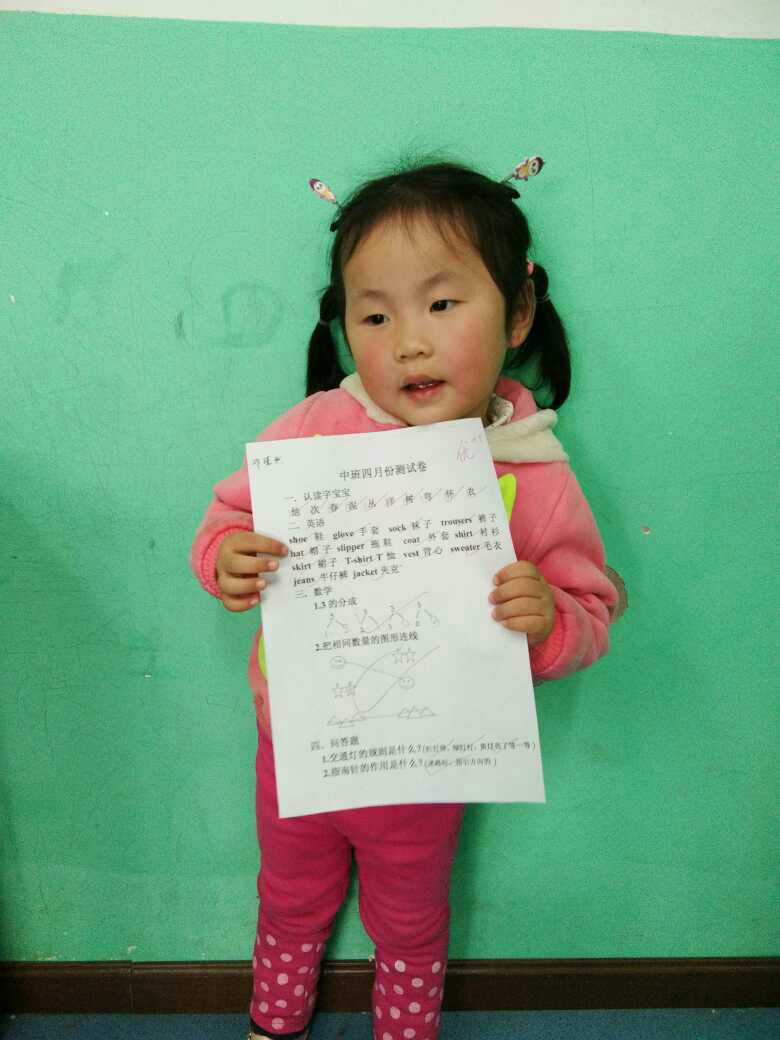 优
中班四月份测试卷
一．认读字宝宝
他 次 春 泥 丛 洋 树 弯 杯 农
二 英语
shoe 鞋 glove 手套 sock 袜子 trousers 裤子
hat 帽子 slipper 拖鞋 coat 外套 shirt 衬衫
skirt 裙子 T-shirt T 恤 vest 背心 sweater 毛衣
jeans 牛仔裤 jacket 夹克
三．数学
1.3 的分成
3 3 3 3
2.把相同数量的图形连线
四、问答题
1.交通灯的规则是什么？(红灯停，绿灯行，黄灯亮了等一等)
2.指南针的作用是什么？(迷路时，指引方向的)